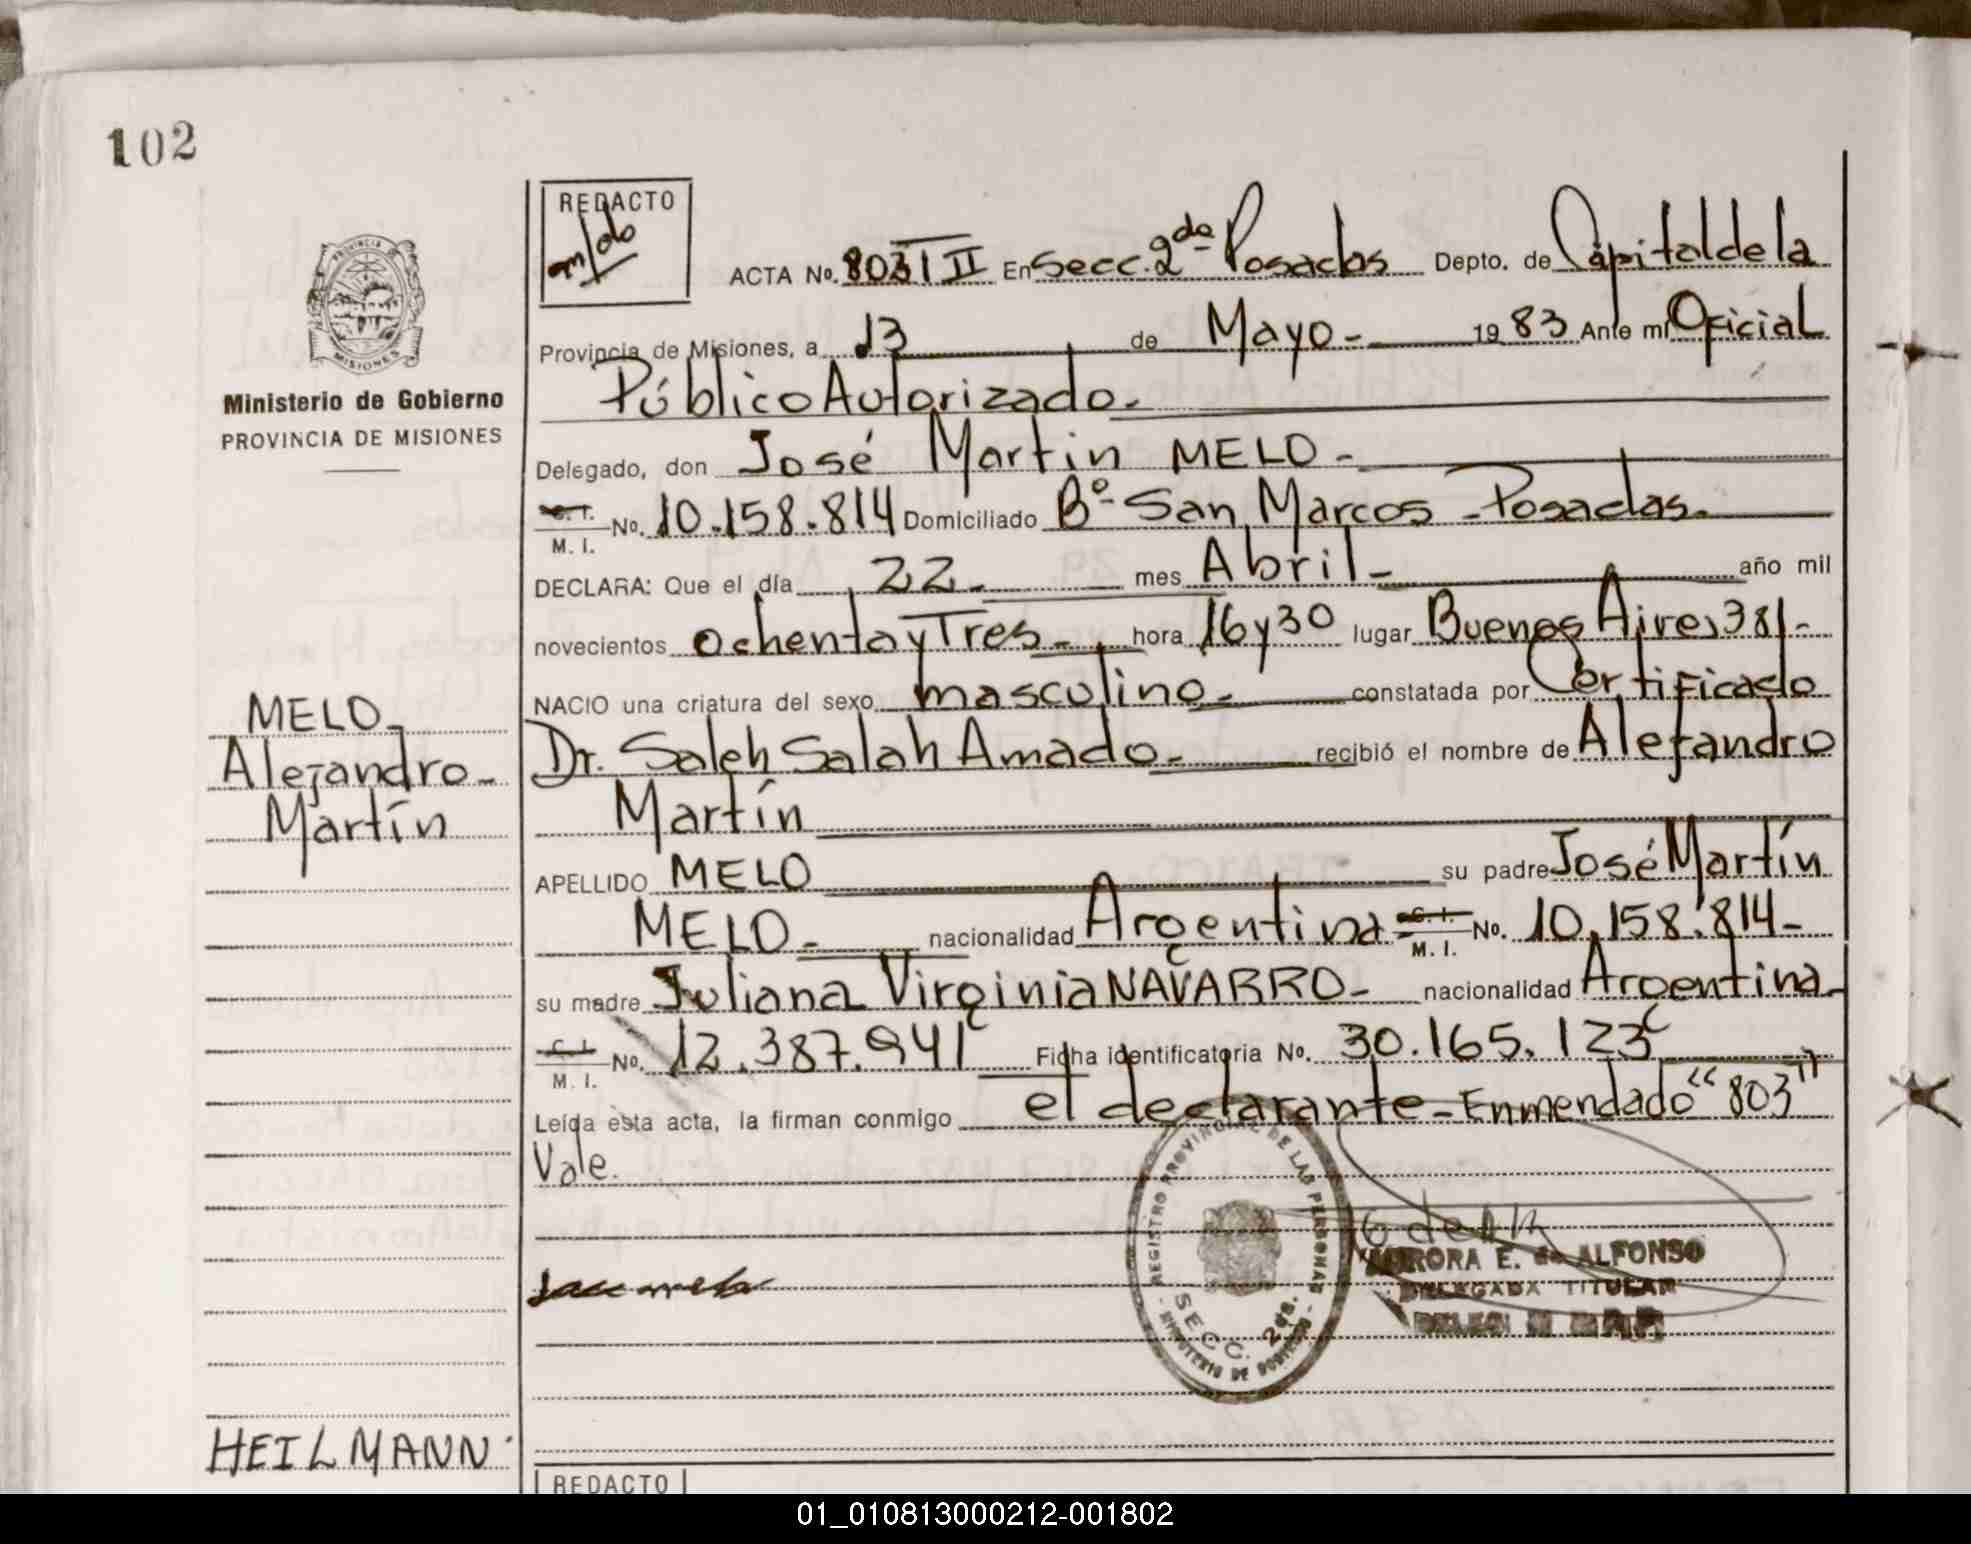 102
REDACTO
ACTA No. 803 T II En Secc. 2da Posadas Depto. de Capital de la
Provincia de Misiones, a 13 de Mayo - 1983 Ante mi Oficial
Público Autorizado.
Delegado, don José Martin MELO -
C. I.
M. I. No. 10.158.814 Domiciliado Bº San Marcos - Posadas.
DECLARA: Que el día 22 - mes Abril - año mil
novecientos ochenta y Tres - hora 16 y 30 lugar Buenos Aires 381 -
NACIO una criatura del sexo masculino - constatada por Certificado
Dr. Saleh Salah Amado - recibió el nombre de Alejandro
Martín
APELLIDO MELO su padre José Martín
MELO - nacionalidad Argentina C. I. M. I. No. 10.158.814 -
su madre Juliana Virginia NAVARRO - nacionalidad Argentina -
C. I.
M. I. No. 12.387.941 Ficha identificatoria No. 30.165.123
Leída esta acta, la firman conmigo el declarante - Enmendado "803"
Vale.
PROVINCIA
MISIONES
Ministerio de Gobierno
PROVINCIA DE MISIONES
MELO -
Alejandro -
Martín
REGISTRO PROVINCIAL DE LAS PERSONAS
SECC. 2da.
- MINISTERIO DE GOBIERNO -
AURORA E. de ALFONSO
DELEGADA TITULAR
HEILMANN
REDACTO
01_010813000212-001802